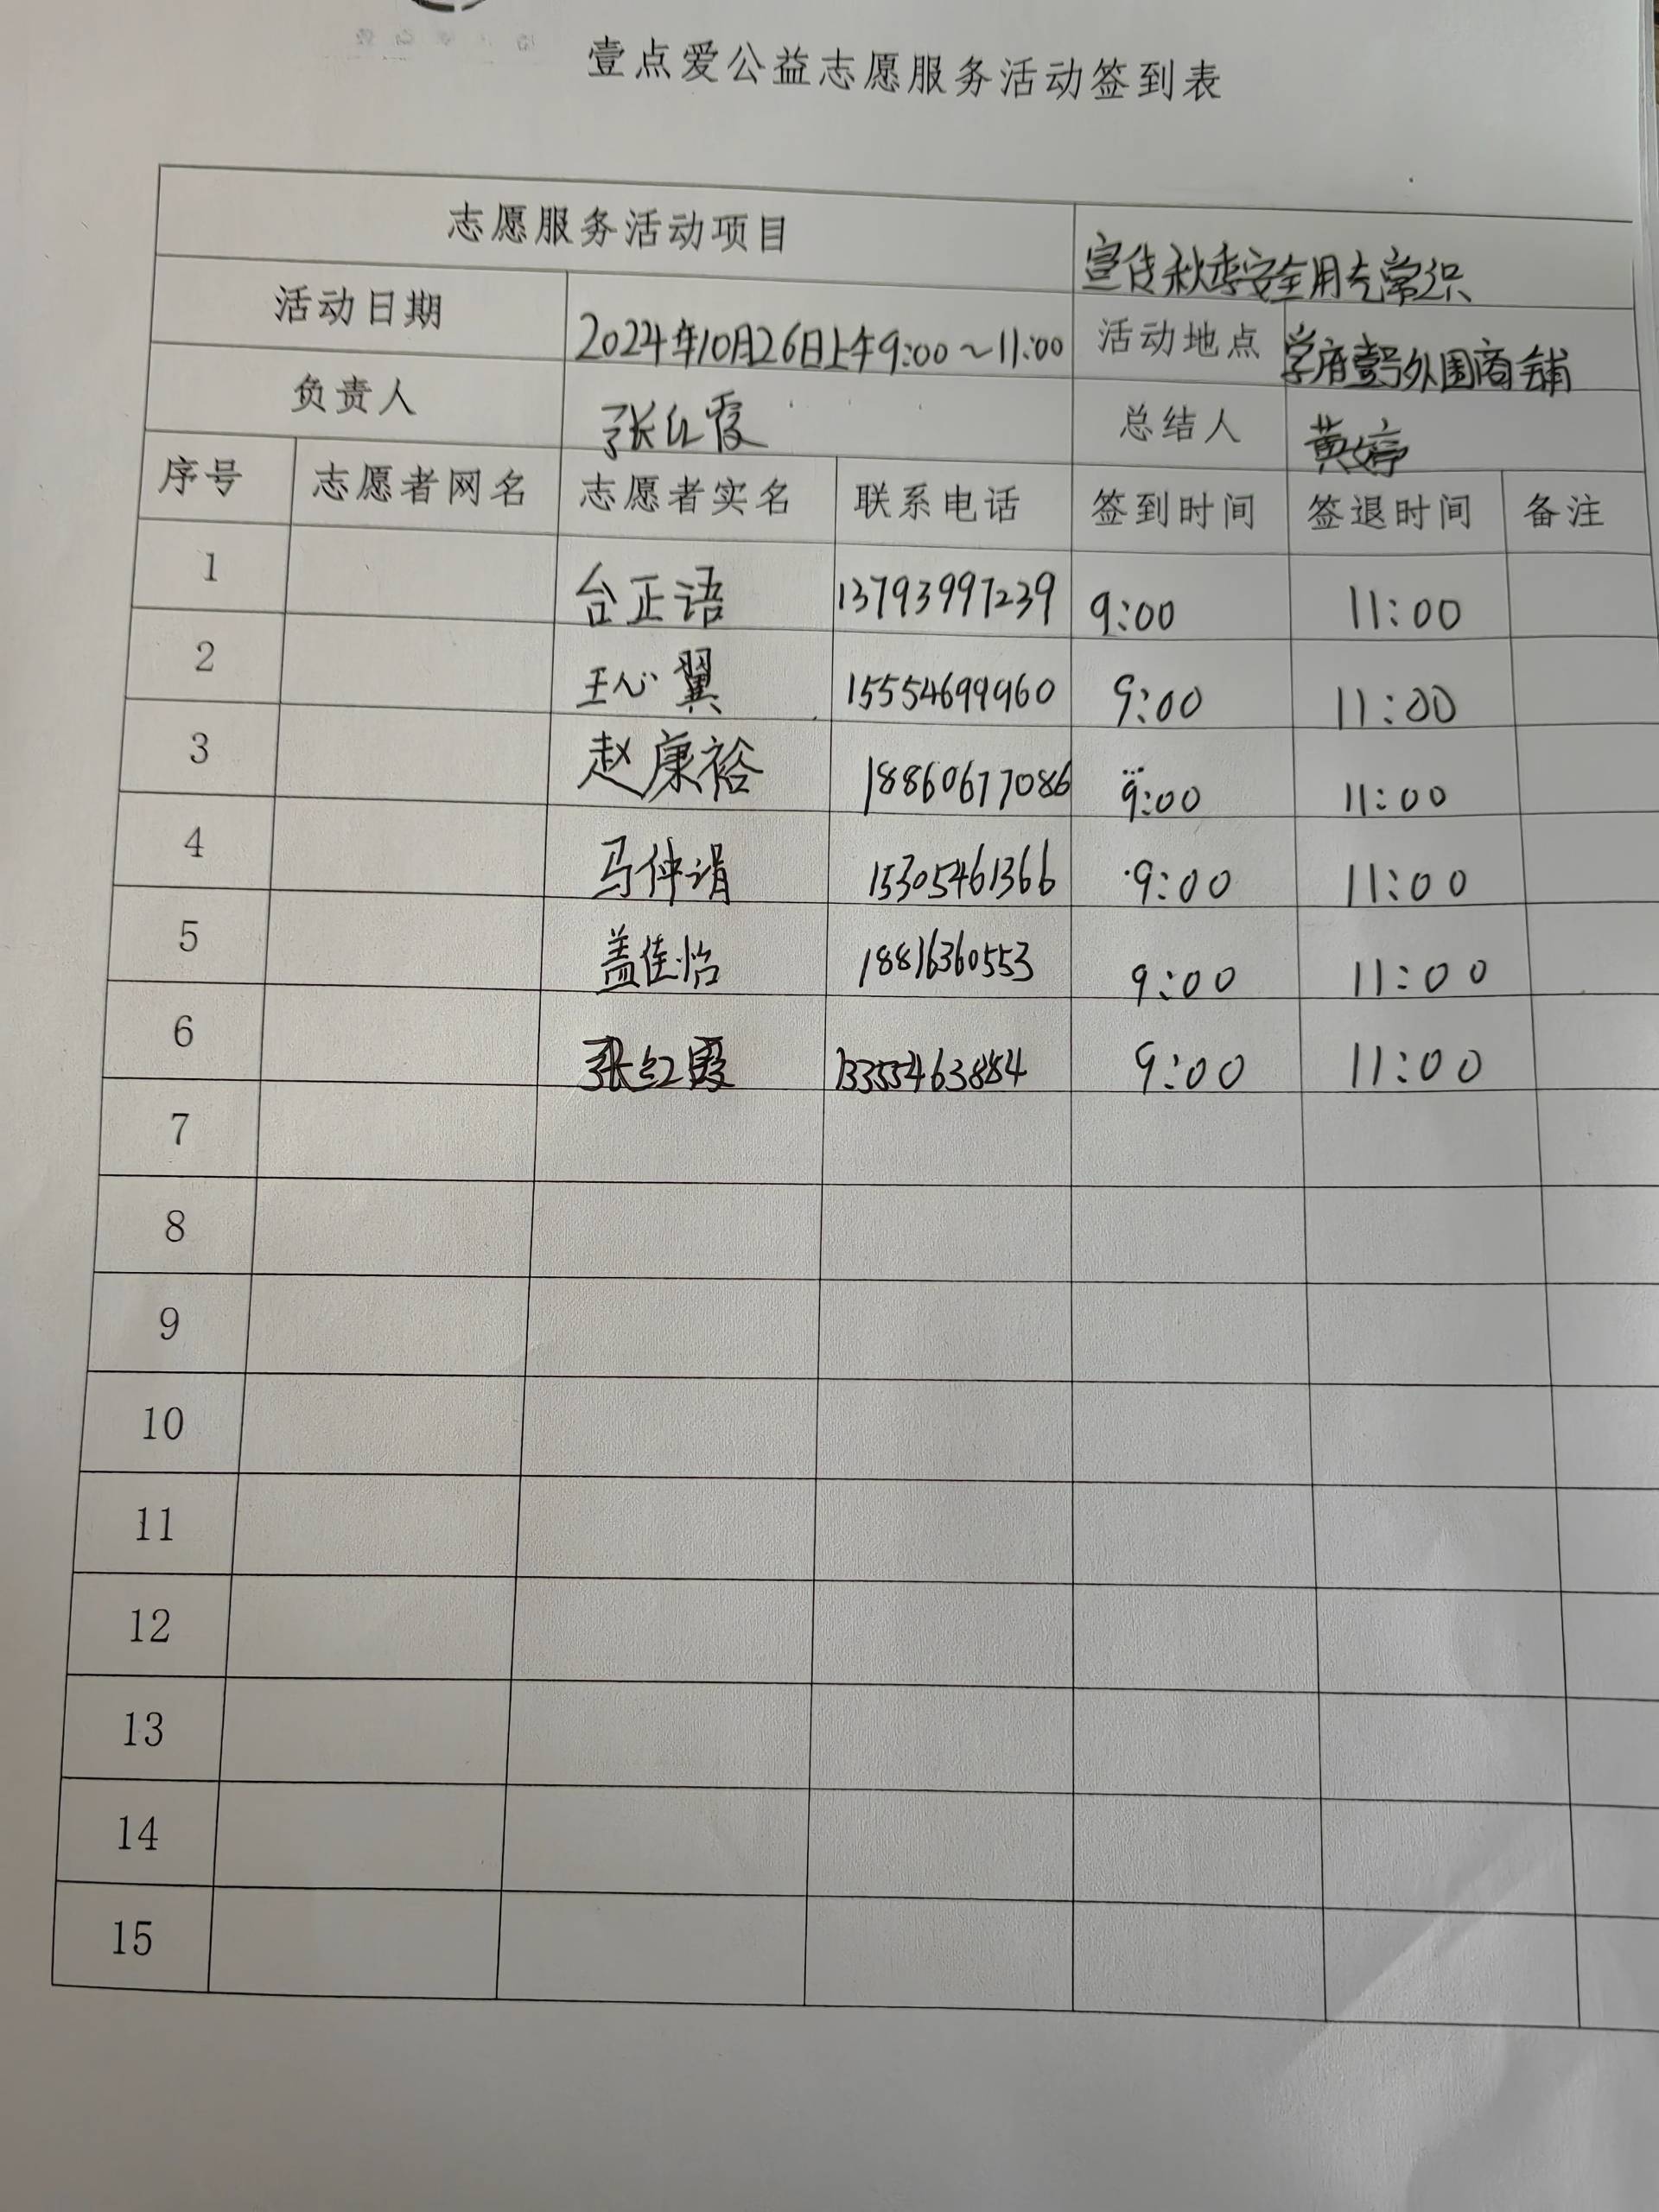 壹点爱公益志愿服务活动签到表
志愿服务活动项目 宣传秋季安全用气常识
活动日期 2024年10月26日上午9:00~11:00 活动地点 学府壹号外围商铺
负责人 张红霞 总结人 黄婷
序号 志愿者网名 志愿者实名 联系电话 签到时间 签退时间 备注
1 台正语 13793997239 9:00 11:00
2 王心翼 15554699960 9:00 11:00
3 赵康裕 18860677086 9:00 11:00
4 马仲谞 15305461366 9:00 11:00
5 盖佳怡 18816360553 9:00 11:00
6 张红霞 13355463884 9:00 11:00
7
8
9
10
11
12
13
14
15